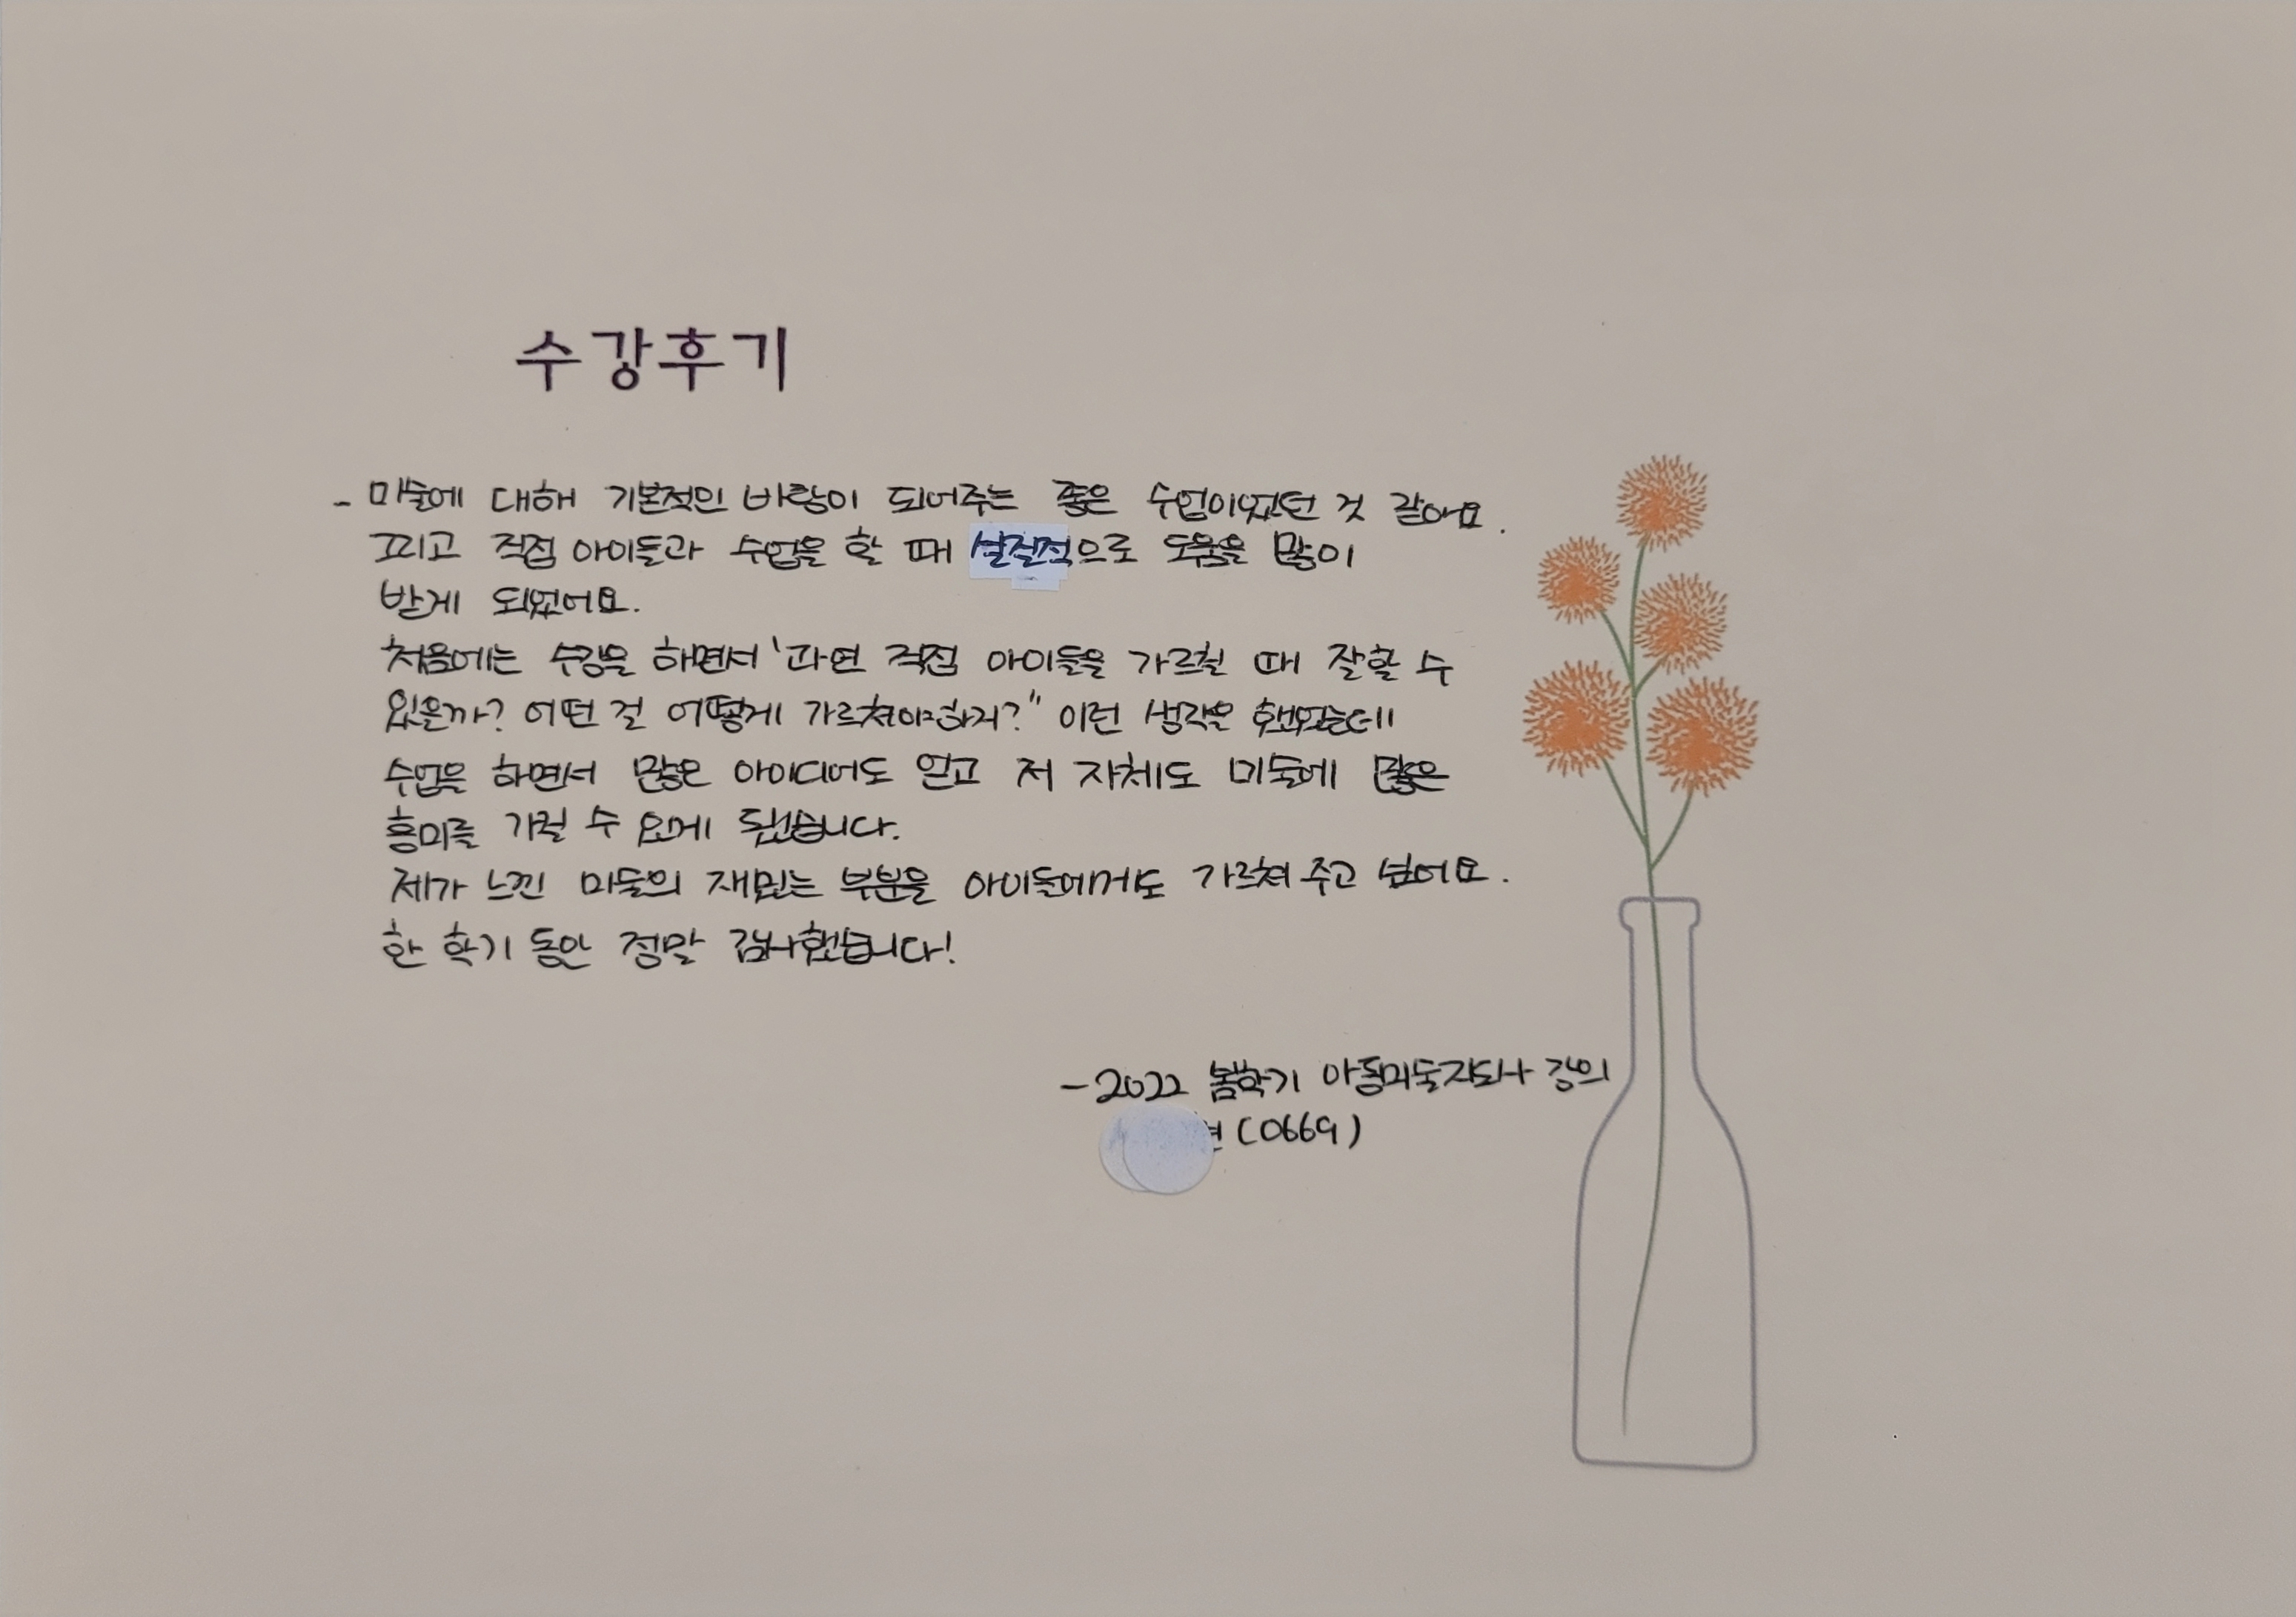 수강후기
- 미술에 대해 기본적인 바탕이 되어주는 좋은 수업이었던 것 같아요.
그리고 직접 아이들과 수업을 할 때 실질적으로 도움을 많이
받게 되었어요.
처음에는 수강을 하면서 '과연 직접 아이들을 가르칠 때 잘할 수
있을까? 어떤 걸 어떻게 가르쳐야하지?" 이런 생각을 했었는데
수업을 하면서 많은 아이디어도 얻고 저 자체도 미술에 많은
흥미를 가질 수 있게 됐습니다.
제가 느낀 미술의 재밌는 부분을 아이들에게도 가르쳐 주고 싶어요.
한 학기 동안 정말 감사했습니다!
- 2022 봄학기 아동미술지도사 강의
현(0669)